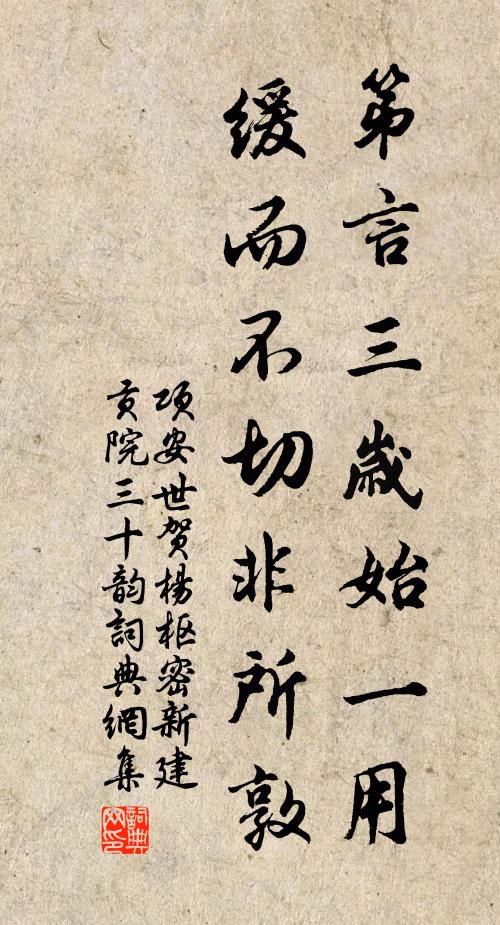 第言三歲始一用
緩而不切非所敦
項安世賀楊枢密新建
貢院三十韵詞典網集
詞典
网印